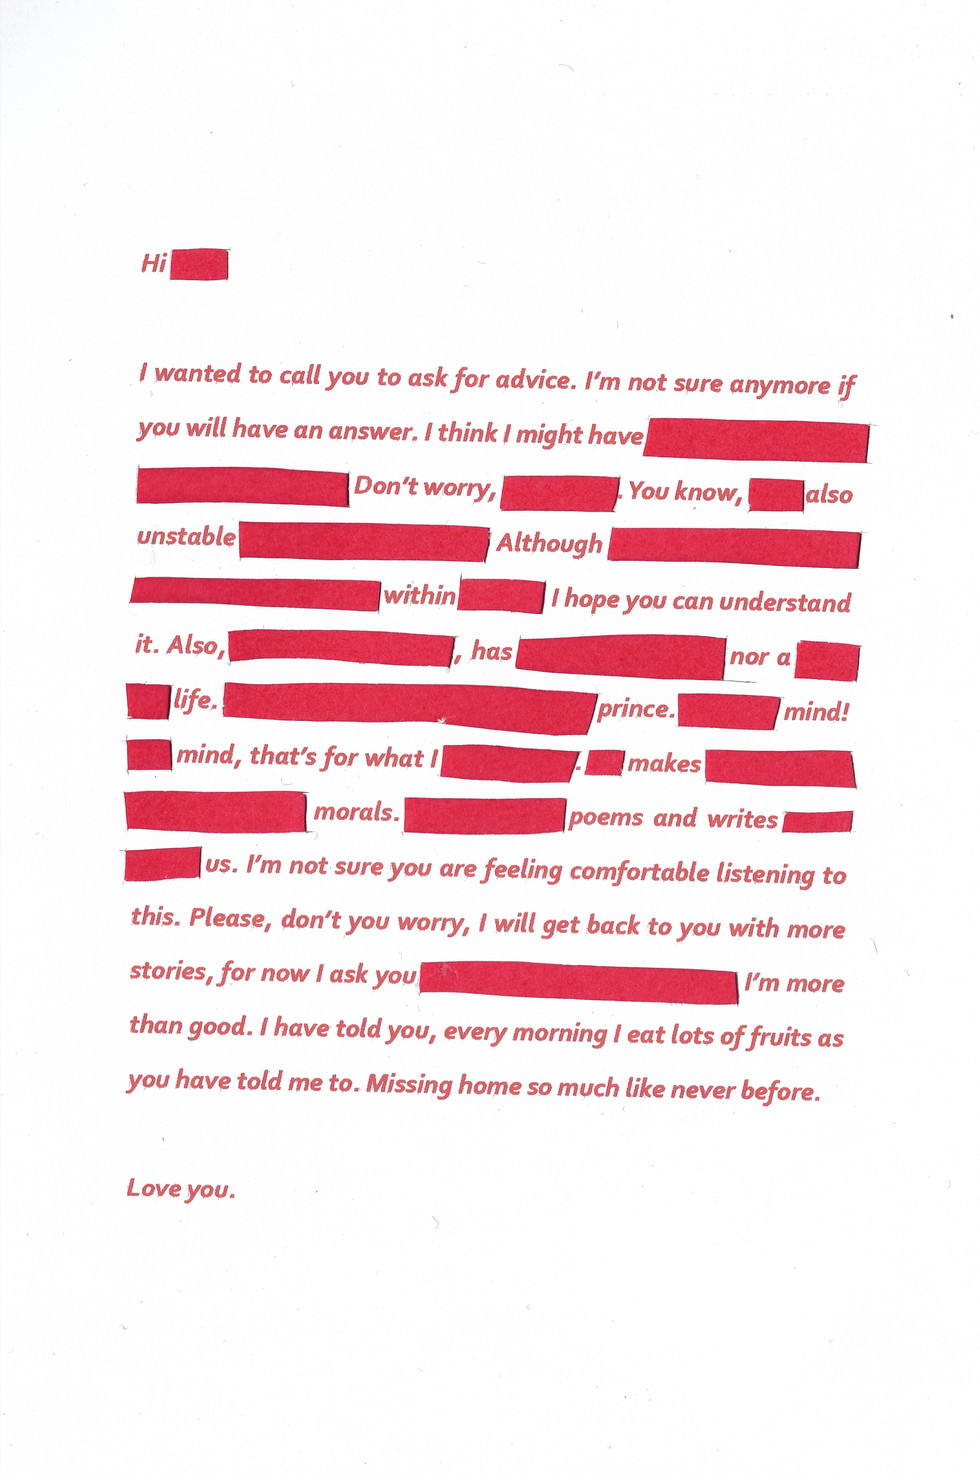 Hi
I wanted to call you to ask for advice. I'm not sure anymore if
you will have an answer. I think I might have
Don't worry, . You know, also
unstable Although
within I hope you can understand
it. Also, , has nor a
life. prince. mind!
mind, that's for what I . makes
morals. poems and writes
us. I'm not sure you are feeling comfortable listening to
this. Please, don't you worry, I will get back to you with more
stories, for now I ask you I'm more
than good. I have told you, every morning I eat lots of fruits as
you have told me to. Missing home so much like never before.
Love you.